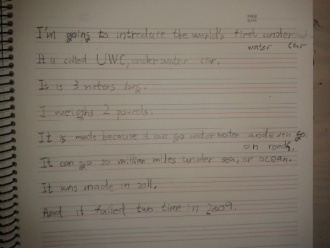 I'm going to introduce the world's first under
water car
It is called UWC, underwater car.
It is 3 meters long.
I weighs 2 pounds.
It is made because it can go underwater and even go
on roads.
It can go 20 million miles under sea, or ocean.
It was made in 2011,
And it failed two time in 2009.